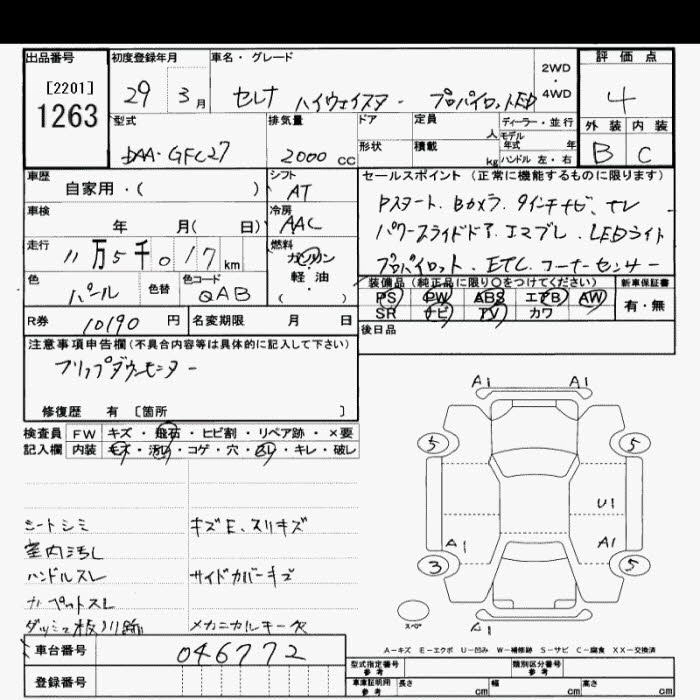 出品番号 初度登録年月 車名・グレード 2WD・4WD 評価点
[2201]
1263
29 3月 セレナ ハイウェイスター プロパイロットED
4
型式 排気量 ドア 定員 人 ディーラー・並行 外装 内装
DAA-GFC27 2000 cc 形状 積載 kg モデル年式 年 ハンドル 左・右 B C
車歴 シフト セールスポイント (正常に機能するものに限ります)
自家用・( ) AT Pスタート、Bカメラ、9インチナビ、TV
車検 冷房
年 月( 日) AAC パワースライドドア、エマブレ、LEDライト
走行 燃料
11万5千017km ガソリン・軽油 ( ) プロパイロット、ETC、コーナーセンサー
色 色替 色コード 装備品 (純正品に限り○をつけてください) 新車保証書
パール QAB PS PW ABS エアB AW 有・無
SR ナビ TV カワ
R券 10190 円 名変期限 月 日 後日品
注意事項申告欄 (不具合内容等は具体的に記入して下さい)
フリップダウンモニター
修復歴 有 [箇所 ]
検査員 FW キズ・飛石・ヒビ割・リペア跡・×要
記入欄 内装 キズ・汚れ・コゲ・穴・スレ・キレ・破し
A1 A1
5 5
U1
A1 A1
3 5
スペア
A1
シートシミ キズE、スリキズ
室内汚れ
ハンドルスレ サイドカバーキズ
カーペットスレ
メカニカルキー欠
A-キズ E-エクボ U-凹み W-補修跡 S-サビ C-腐食 XX-交換済
車台番号 046772
登録番号
型式指定番号 参考 類別区分番号 参考
車庫証明用 参考 長さ cm 幅 cm 高さ cm